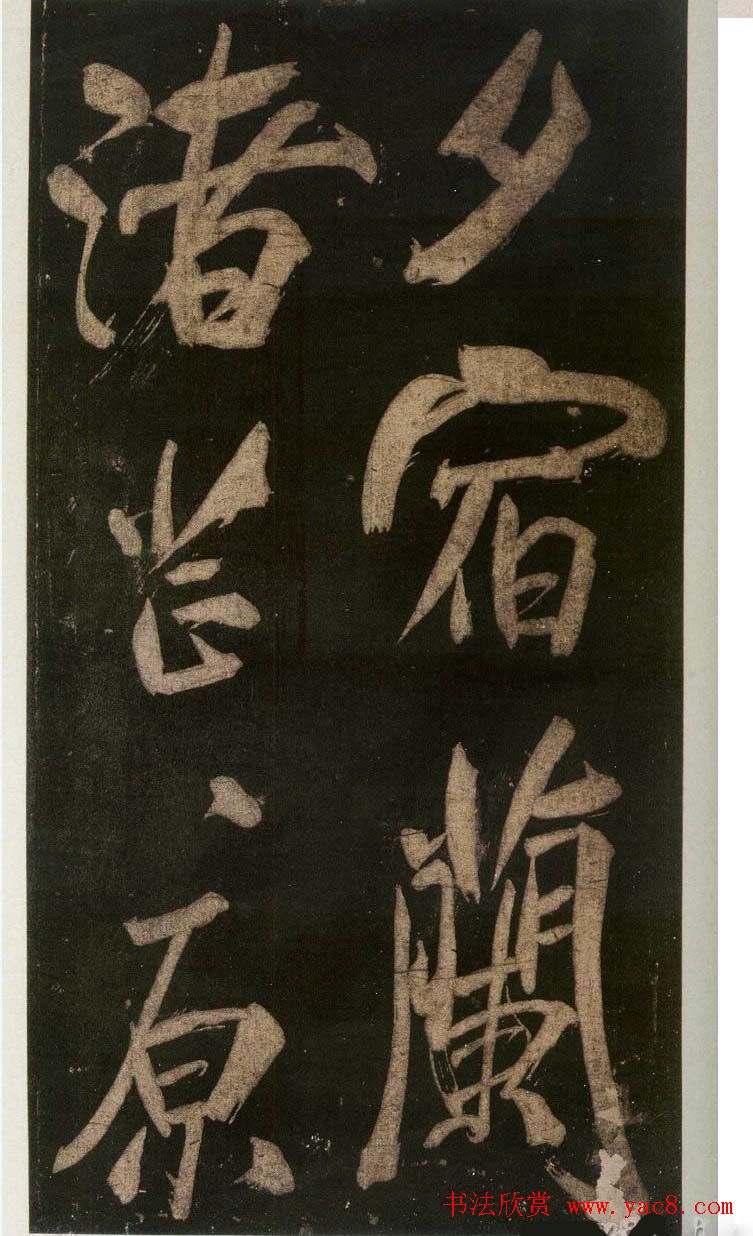 夕宿蘭
渚芒、原
书法欣赏 www.yac8.com